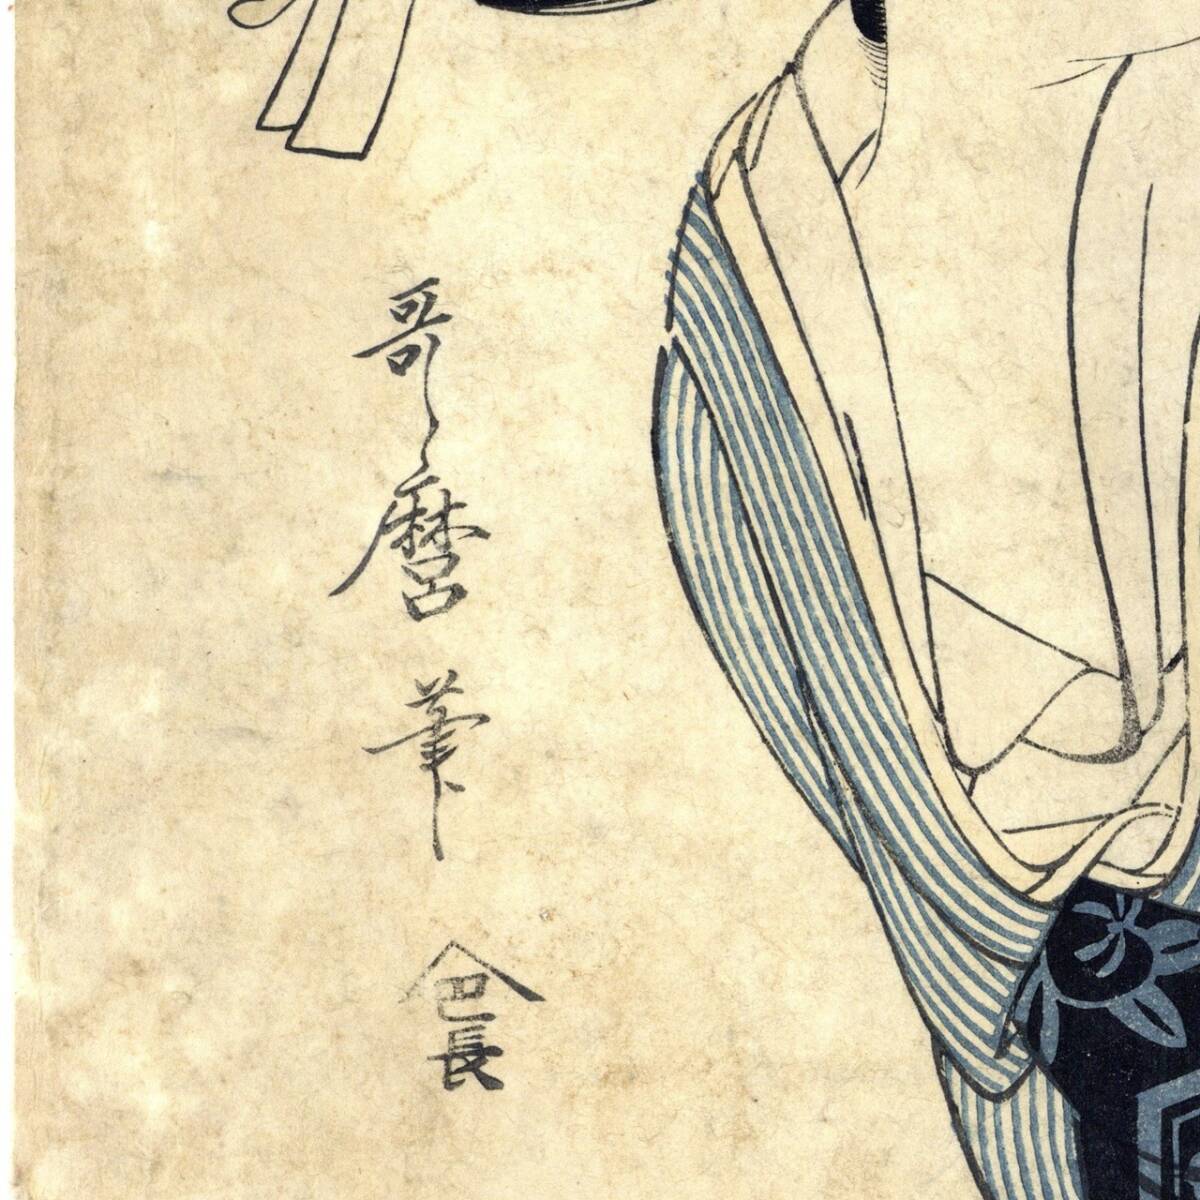 哥麿筆
巴長